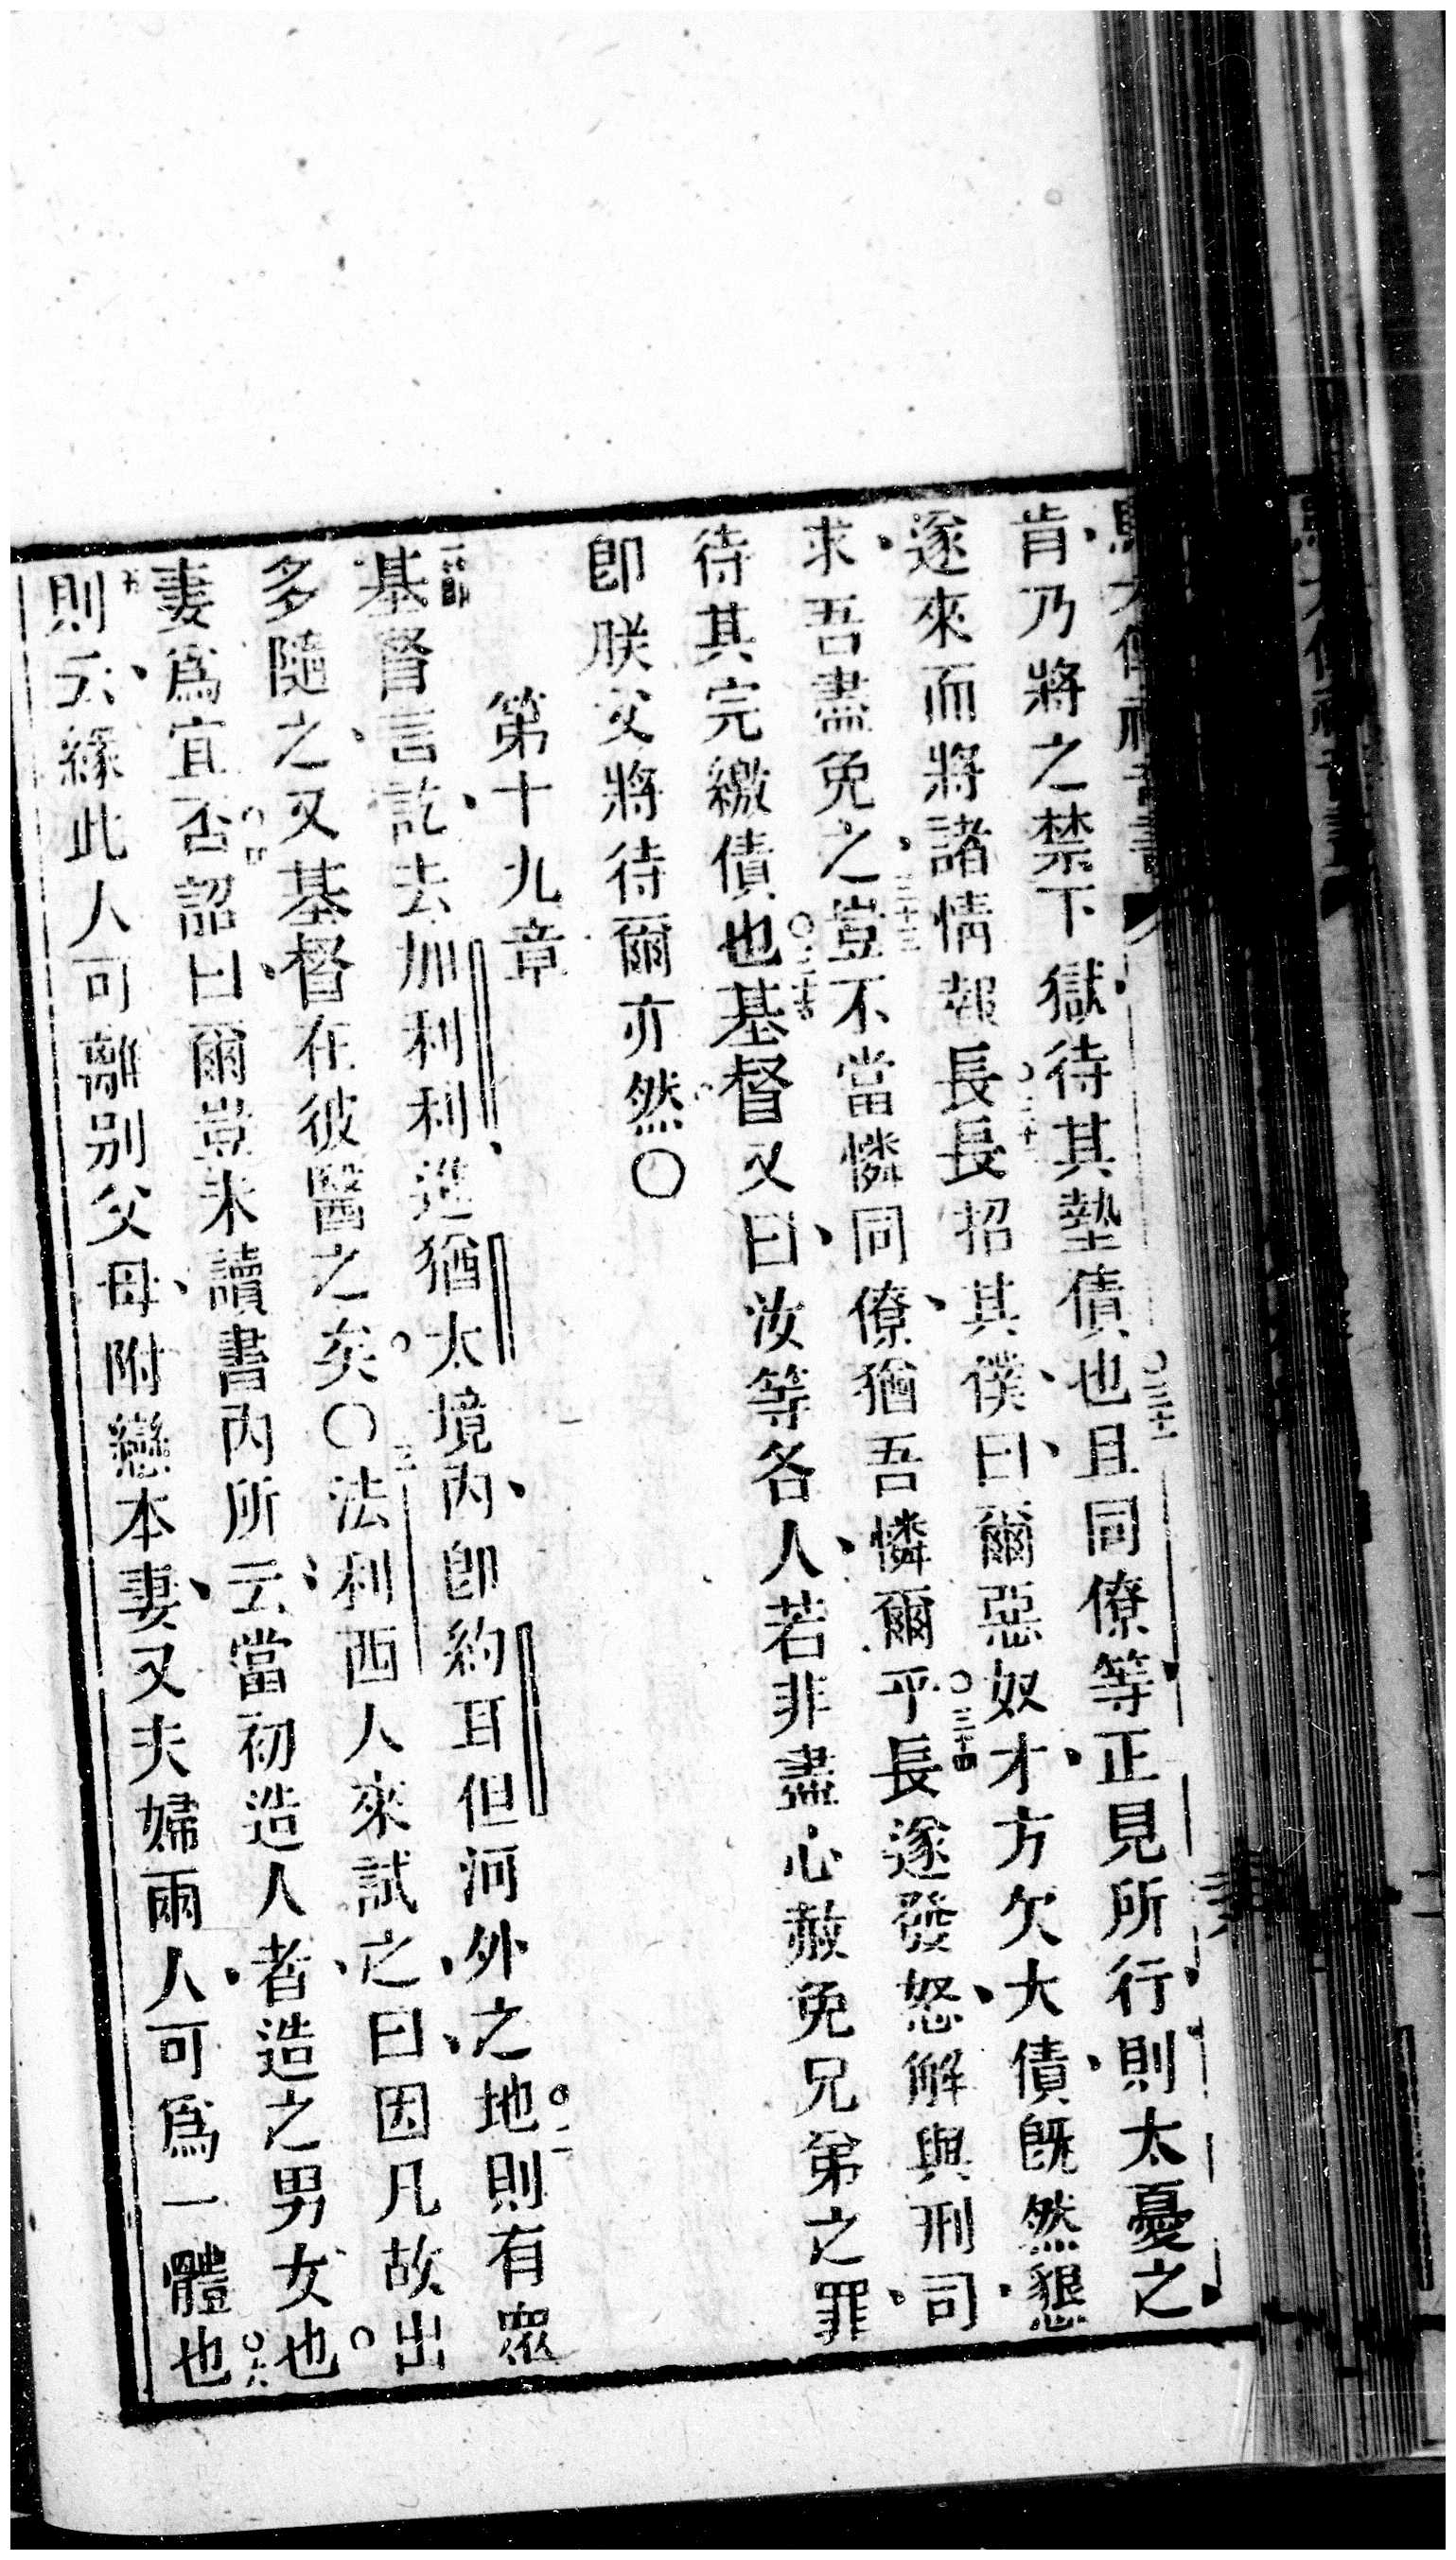 肯乃將之禁下獄待其墊債也○三十一且同僚等正見所行則太憂之
遂來而將諸情報長○三十二長招其僕曰爾惡奴才方欠大債既然懇
求吾盡免之三十三豈不當憐同僚猶吾憐爾乎○三十四長遂發怒解與刑司
待其完繳債也○三十五基督又曰汝等各人若非盡心赦免兄弟之罪
即朕父將待爾亦然○
第十九章
一節基督言訖去加利利進猶太境內即約耳但河外之地○二則有眾
多隨之又基督在彼醫之矣○三法利西人來試之曰因凡故出
妻為宜否○四詔曰爾豈未讀書內所云當初造人者造之男女也○
五則云緣此人可離別父母附戀本妻又夫婦兩人可為一體也○六